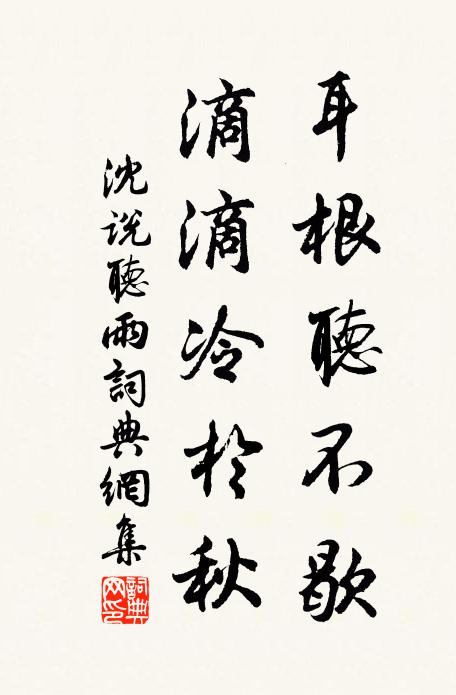 耳根聽不歇
滴滴冷於秋
沈说聽雨詞典網集
詞典网印